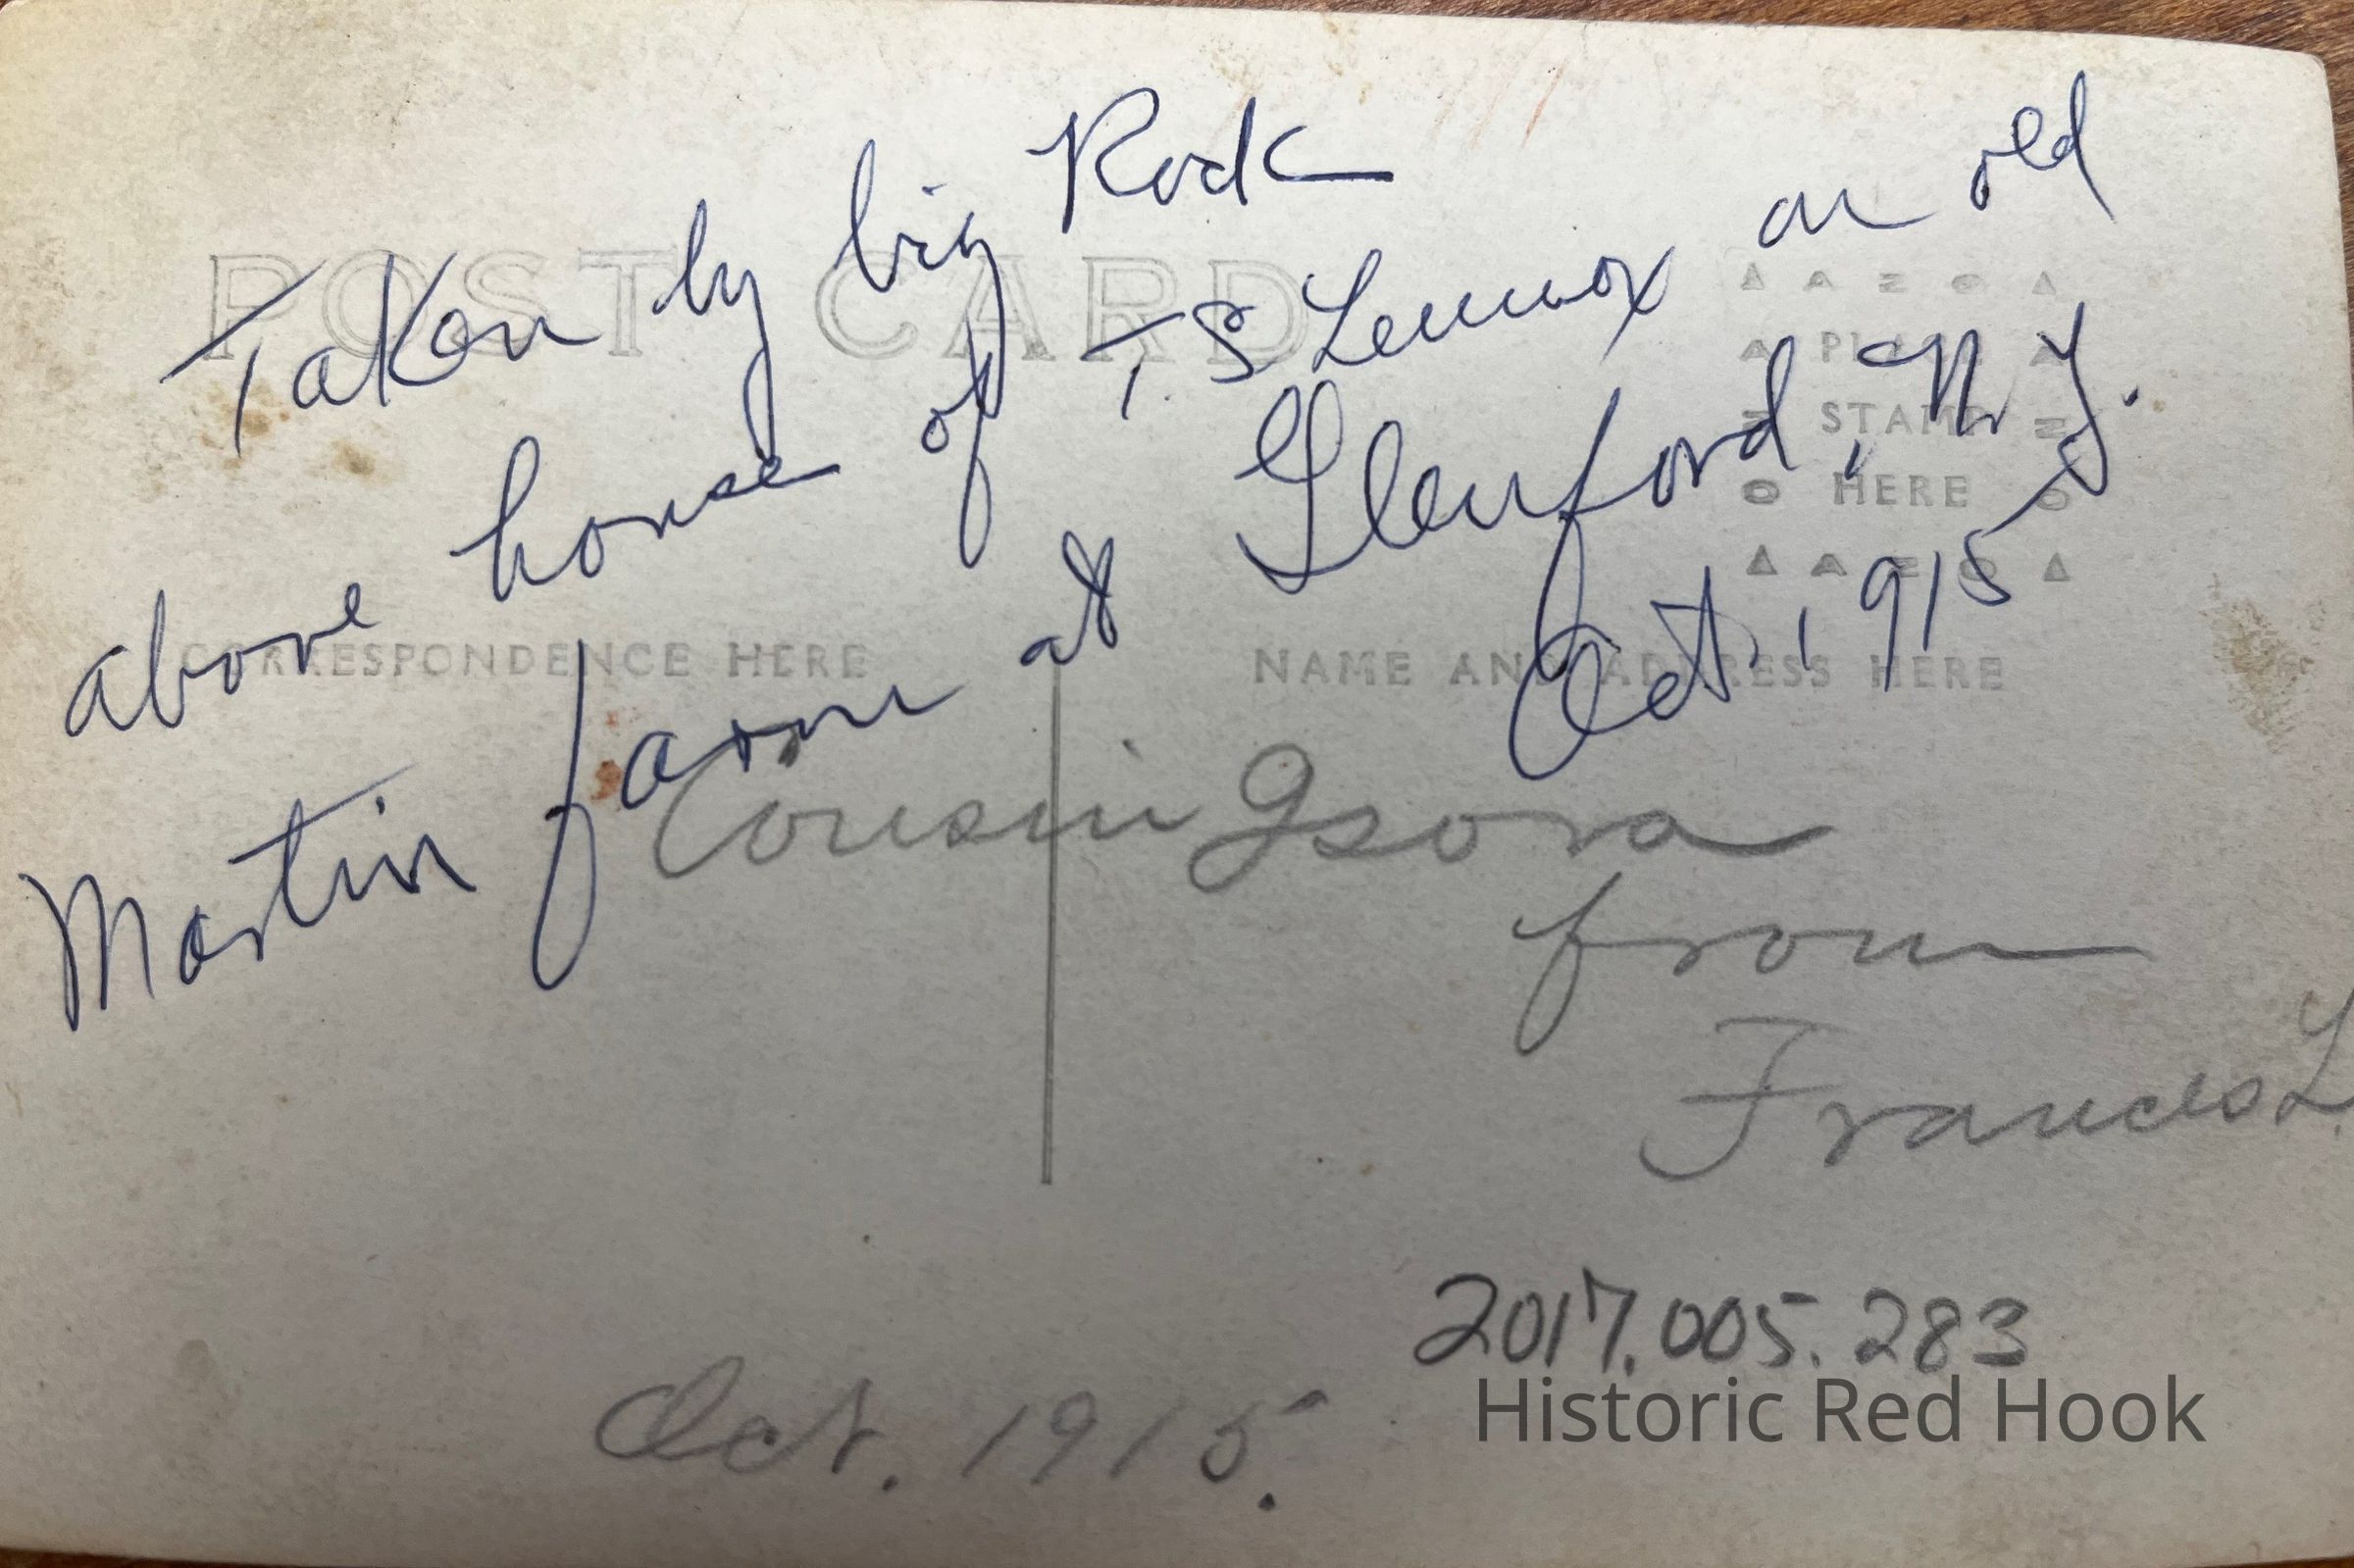 Taken by big Rock
above house of T.S Lennox on old
Martin farm at Glenford, N.Y.
Oct. 1915
POST CARD
AZO
PLACE
STAMP
HERE
CORRESPONDENCE HERE
NAME AND ADDRESS HERE
Cousin Isora
from
Frances L.
2017.005.283
Oct. 1915.
Historic Red Hook